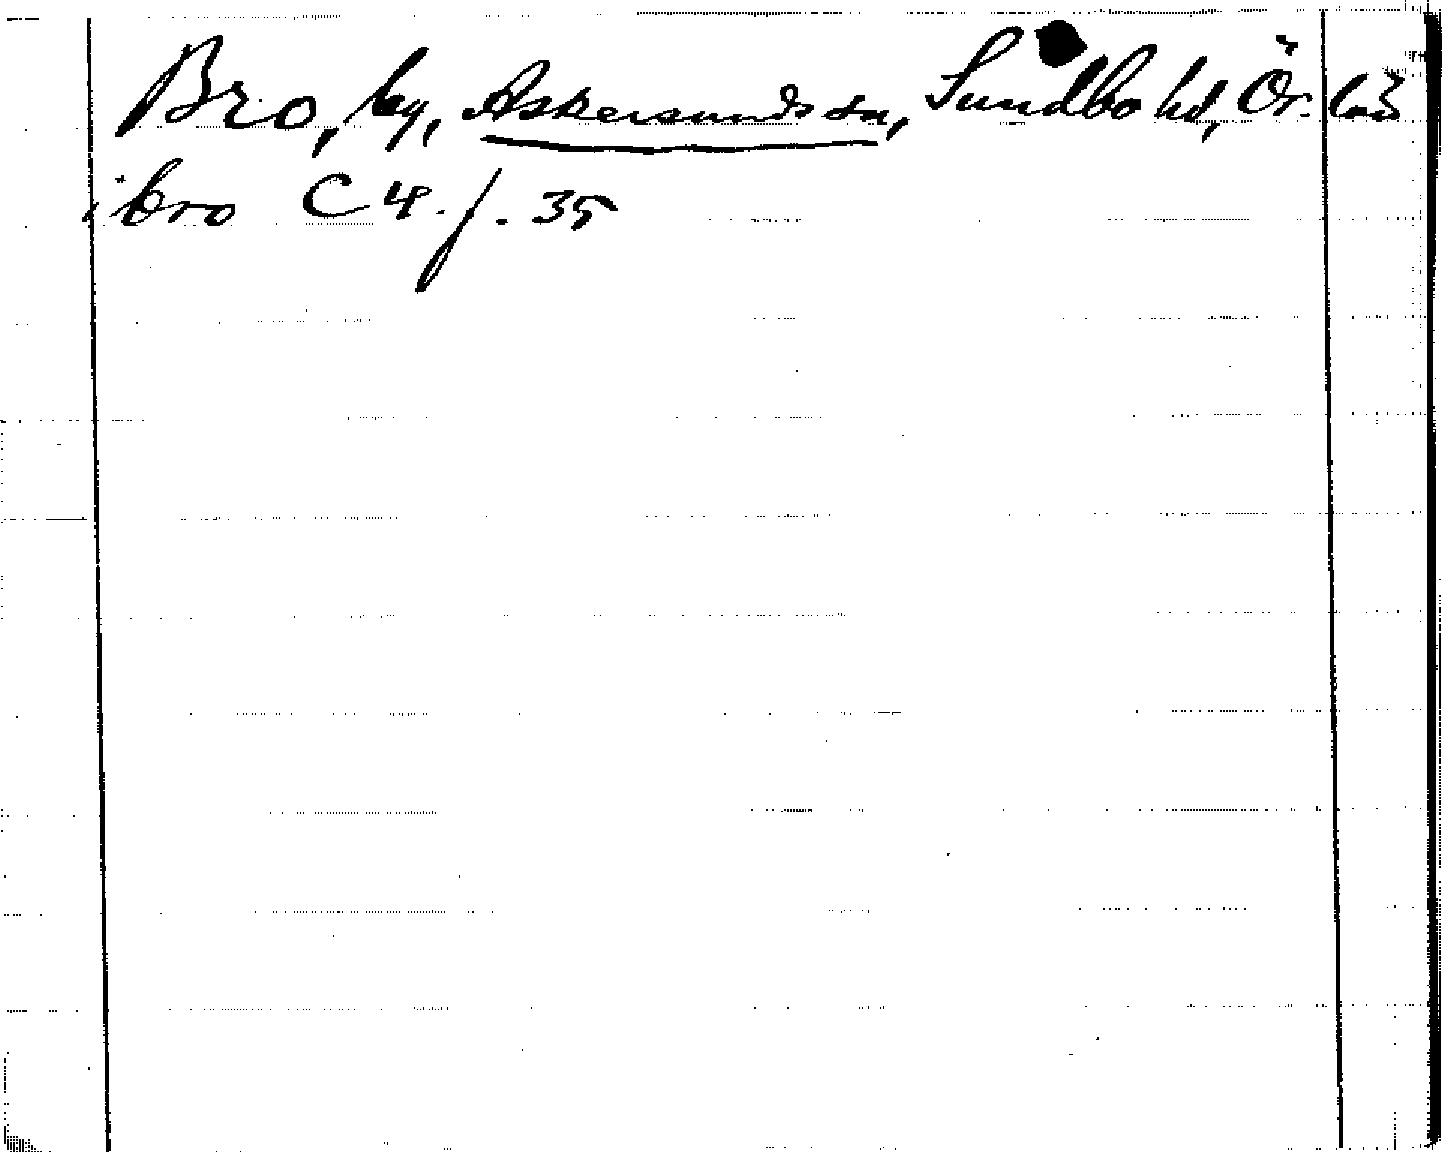 Bro, by, Askersunds sn, Sundbo hd, Ör. län
i bro C 4. f. 35